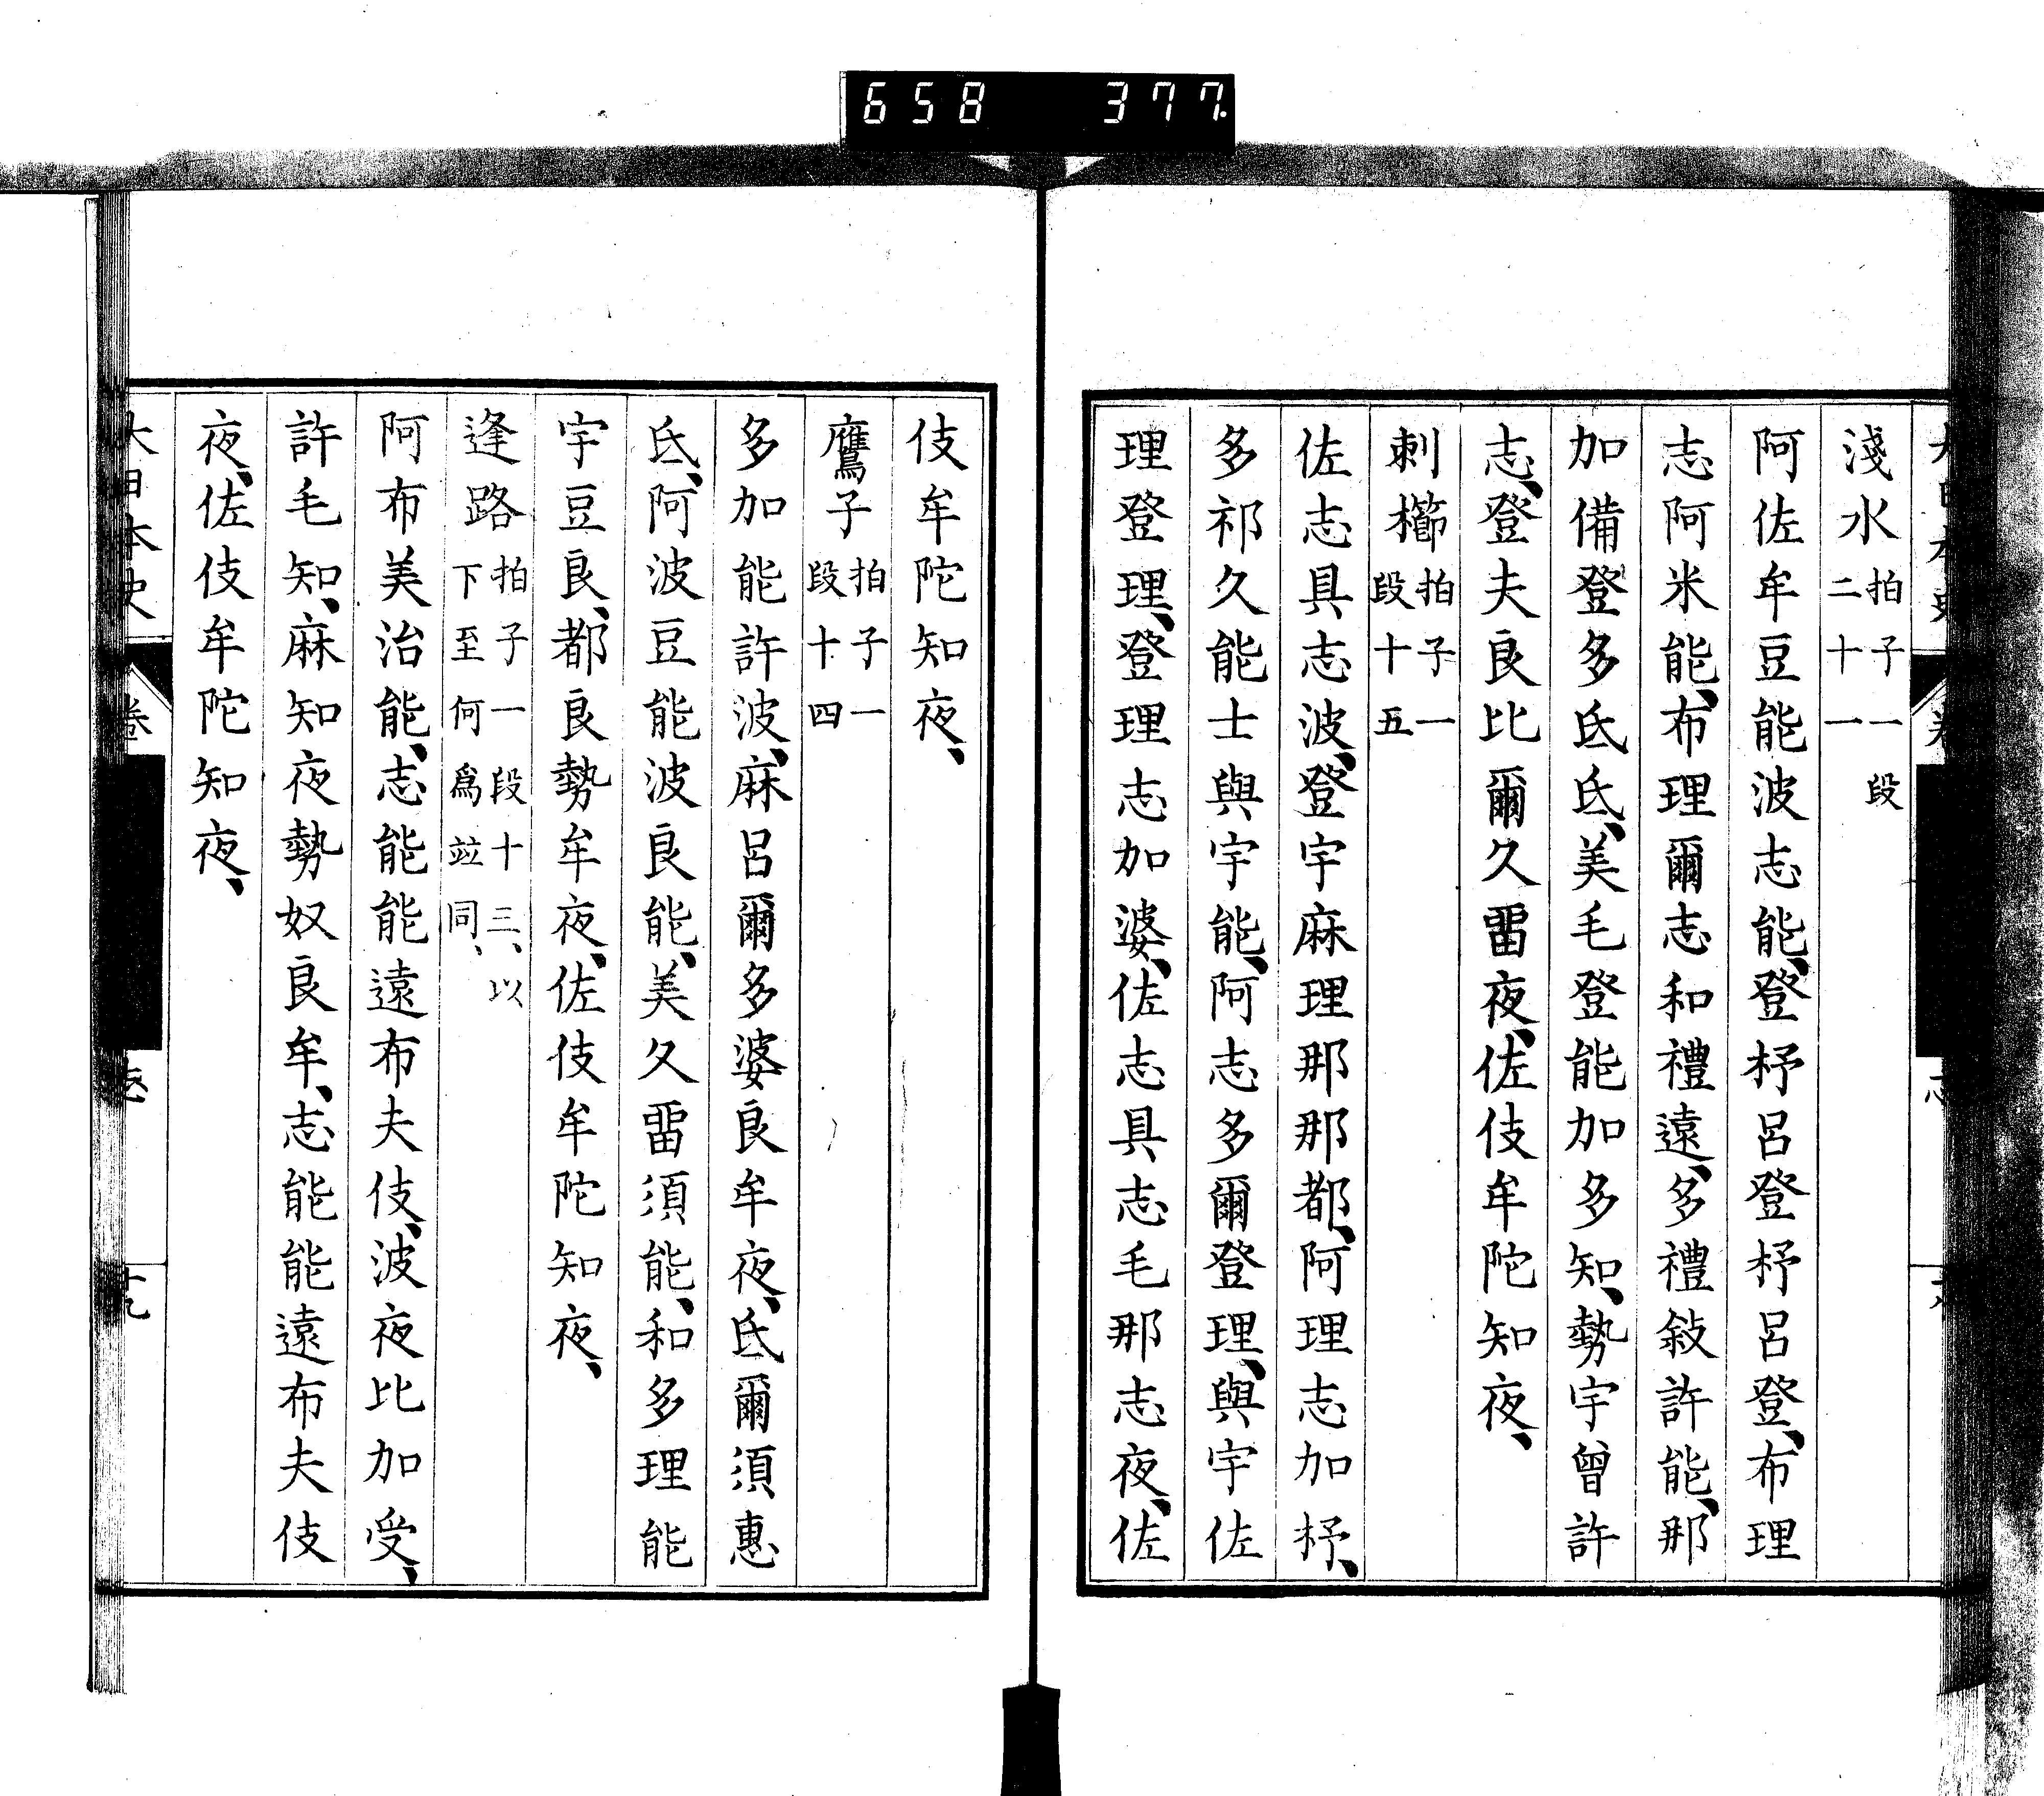 658 377.
淺水拍子一段二十一
阿佐牟豆能波志能、登杼呂登杼呂登、布理
志阿米能、布理爾志和禮遠、多禮敍許能、那
加備登多氐氐、美毛登能加多知、勢宇曾許
志、登夫良比爾久畱夜、佐伎牟陀知夜、
刺櫛拍子一段十五
佐志具志波、登宇麻理那那都、阿理志加杼、
多祁久能士與宇能、阿志多爾登理、與宇佐
理登理、登理志加婆、佐志具志毛那志夜、佐
伎牟陀知夜、
鷹子拍子一段十四
多加能許波、麻呂爾多婆良牟夜、氐爾須惠
氐、阿波豆能波良能、美久畱須能、和多理能
宇豆良、都良勢牟夜、佐伎牟陀知夜、
逢路拍子一段十三、以下至何爲竝同、
阿布美治能、志能能遠布夫伎、波夜比加受、
許毛知、麻知夜勢奴良牟、志能能遠布夫伎
夜、佐伎牟陀知夜、
大日本史
卷
志
十九